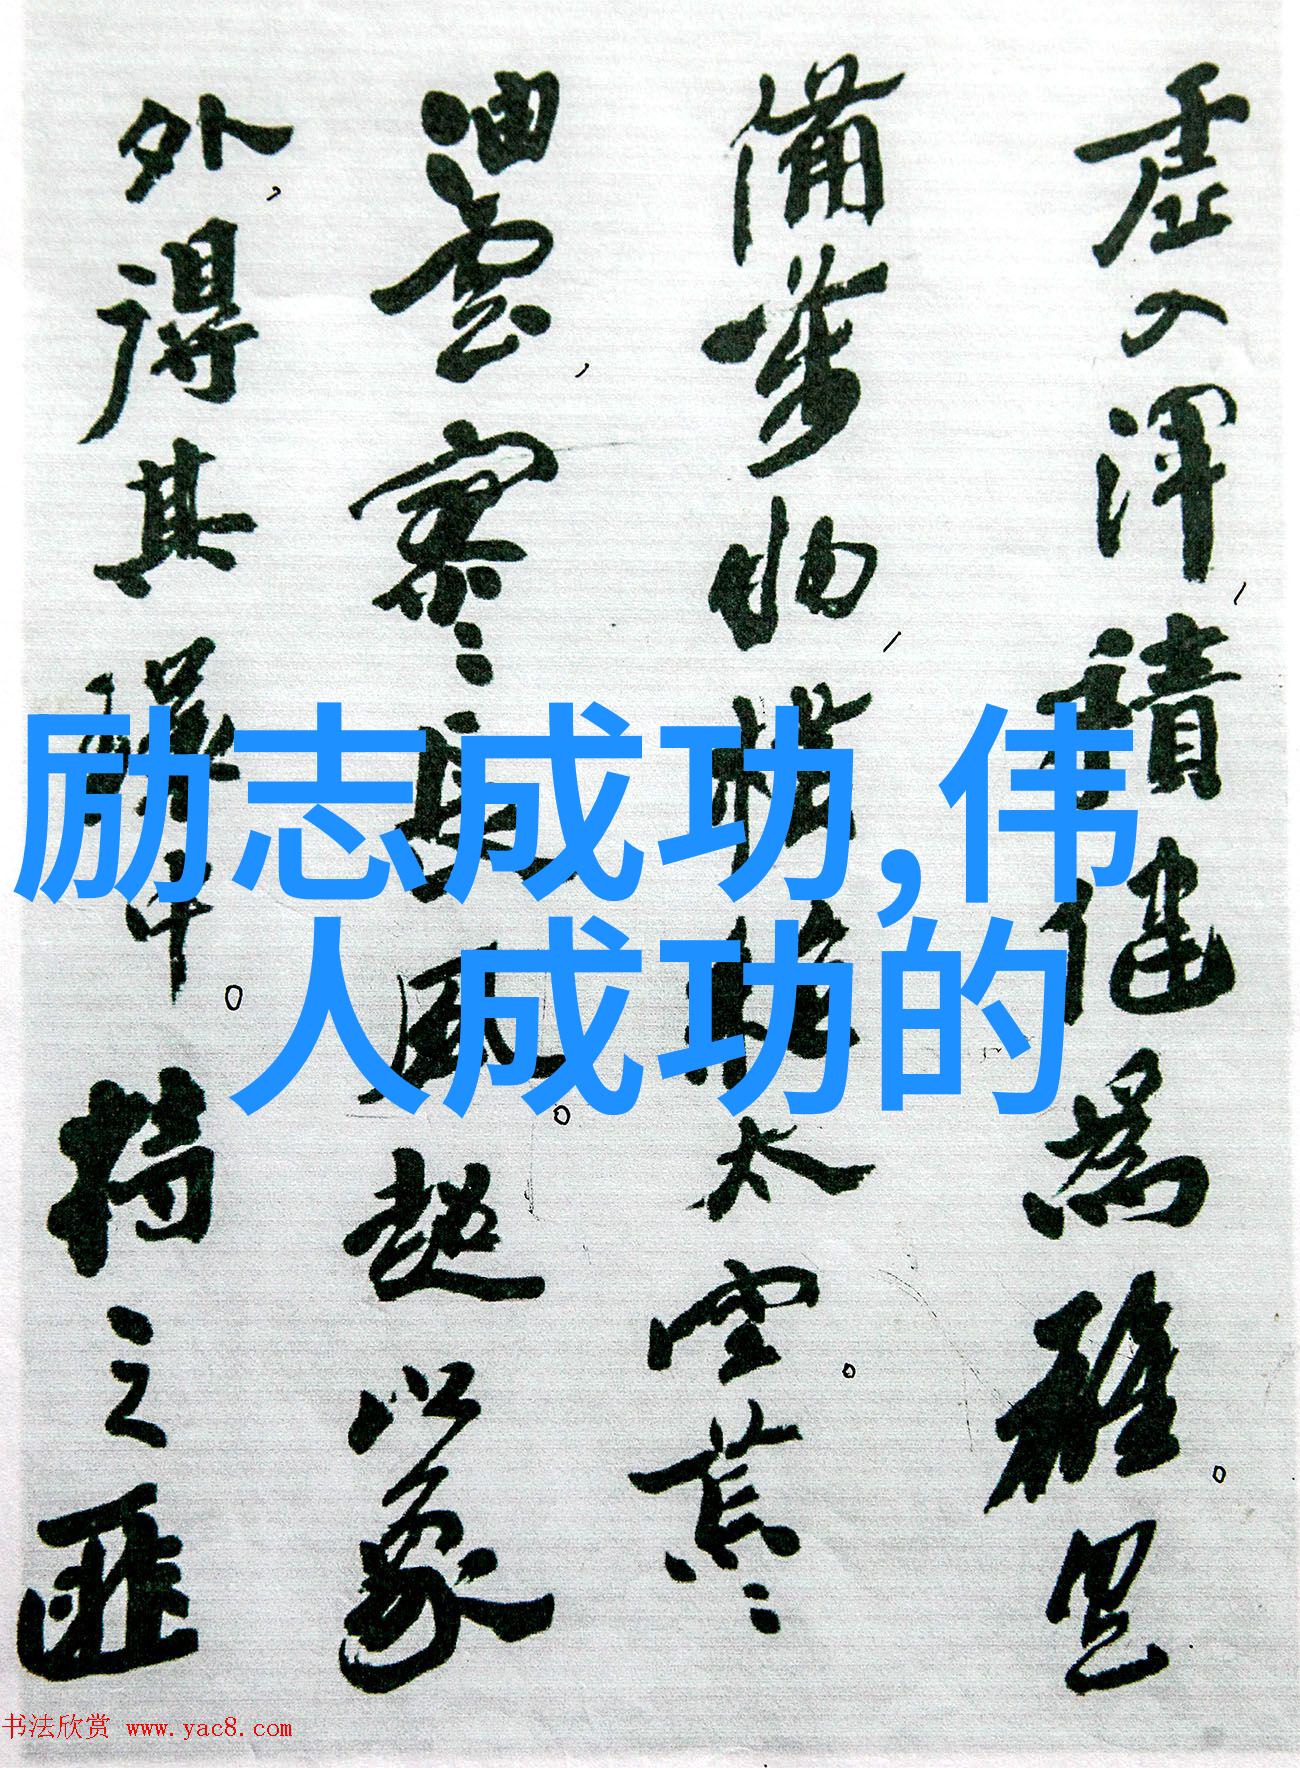 虛入渾，積健為雄。具
備萬物，橫絕太空。荒〻
油雲，寥〻長風。超以象
外，得其環中。持之匪
励志成功,伟
人成功的
书法欣赏 www.yac8.com